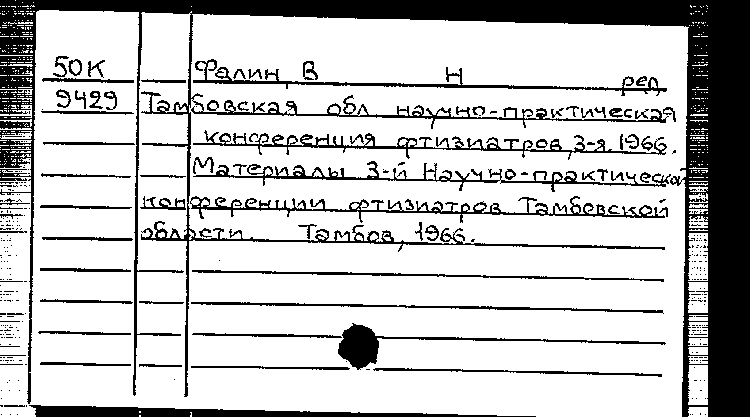 50К Фалин, В Н ред
9429 Тамбовская обл научно-практическая
конференция фтизиатров, 3-я. 1966.
Материалы 3-й Научно-практической
конференции фтизиатров Тамбовской
области. Тамбов, 1966.